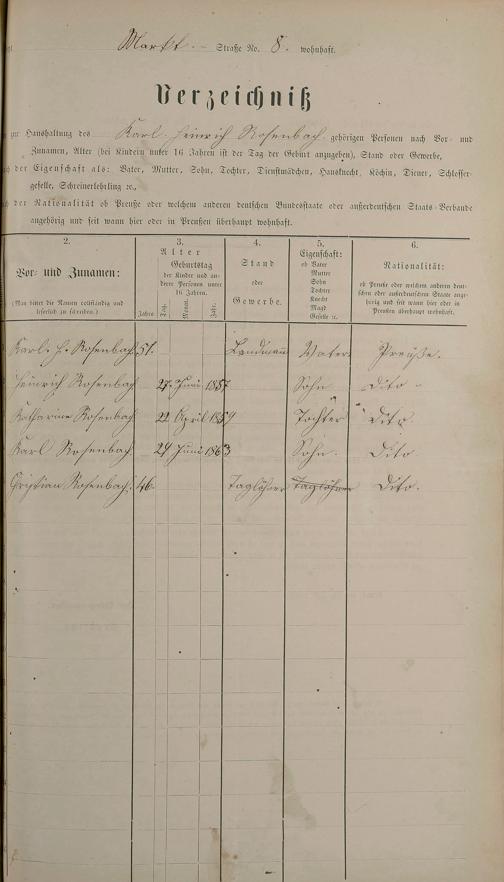 Markt -- Straße No. 8. wohnhaft.
Verzeichniß
zur Haushaltung des Karl Heinrich Rosenbach gehörigen Personen nach Vor- und
Zunamen, Alter (bei Kindern unter 16 Jahren ist der Tag der Geburt anzugeben), Stand oder Gewerbe,
der Eigenschaft als: Vater, Mutter, Sohn, Tochter, Dienstmädchen, Hausknecht, Köchin, Diener, Schlosser-
geselle, Schreinerlehrling ꝛc.,
der Nationalität ob Preuße oder welchem anderen deutschen Bundesstaate oder außerdeutschen Staats-Verbande
angehörig und seit wann hier oder in Preußen überhaupt wohnhaft.
2. 3. 4. 5. 6.
Vor- und Zunamen:
(Man bittet die Namen vollständig und
leserlich zu schreiben.)
Alter
Geburtstag
der Kinder und an-
derer Personen unter
16 Jahren.
Jahre Tag. Monat. Jahr.
Stand
oder
Gewerbe.
Eigenschaft:
ob Vater
Mutter
Sohn
Tochter
Knecht
Magd
Geselle ꝛc.
Nationalität:
ob Preuße oder welchem anderen deut-
schen oder außerdeutschen Staate ange-
hörig und seit wann hier oder in
Preußen überhaupt wohnhaft.
Karl. H. Rosenbach 51. Landmann Vater Preuße.
Heinrich Rosenbach 27. Juni 1857 Sohn Dito -
Katharine Rosenbach 22 April 1859 Tochter Dito
Karl Rosenbach 24 Juni 1863 Sohn. Dito
Cristian Rosenbach. 46. Taglöhner Taglöhner Dito.